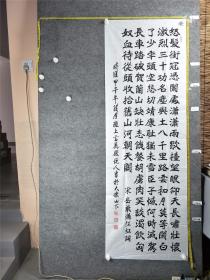 怒髮衝冠憑闌處瀟瀟雨歇擡望眼仰天長嘯壯懷
激烈三十功名塵與土八千里路雲和月莫等閒白
了少年頭空悲切靖康恥猶未雪臣子恨何時滅駕
長車踏破賀蘭山缺壯志飢餐胡虜肉笑談渴飲匈
奴血待從頭收拾舊山河朝天闕 宋岳飛滿江紅詞